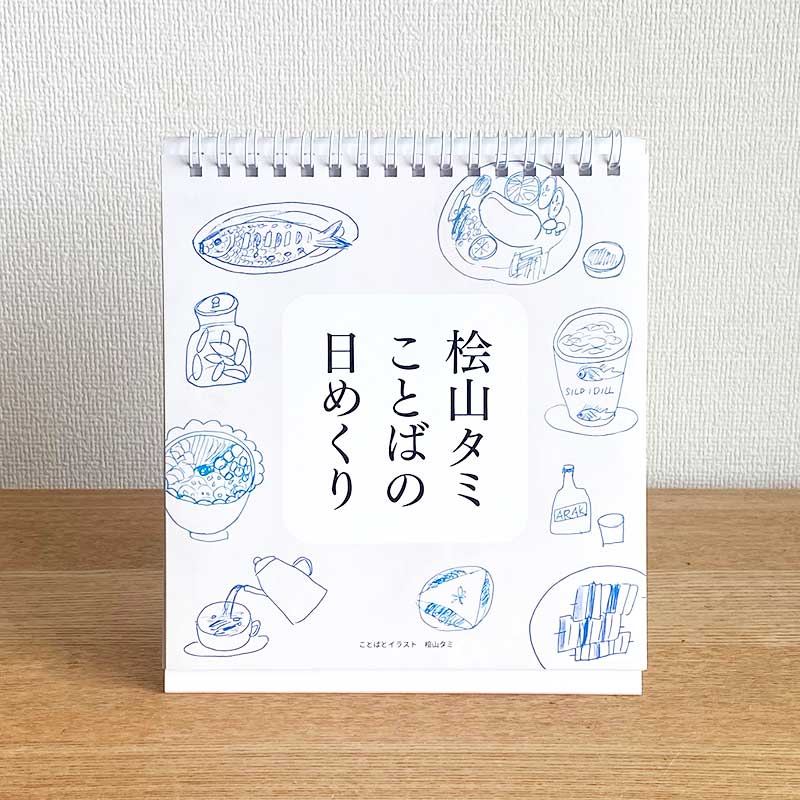 桧山タミ
ことばの
日めくり
SILD I DILL
ARAK
ことばとイラスト　桧山タミ